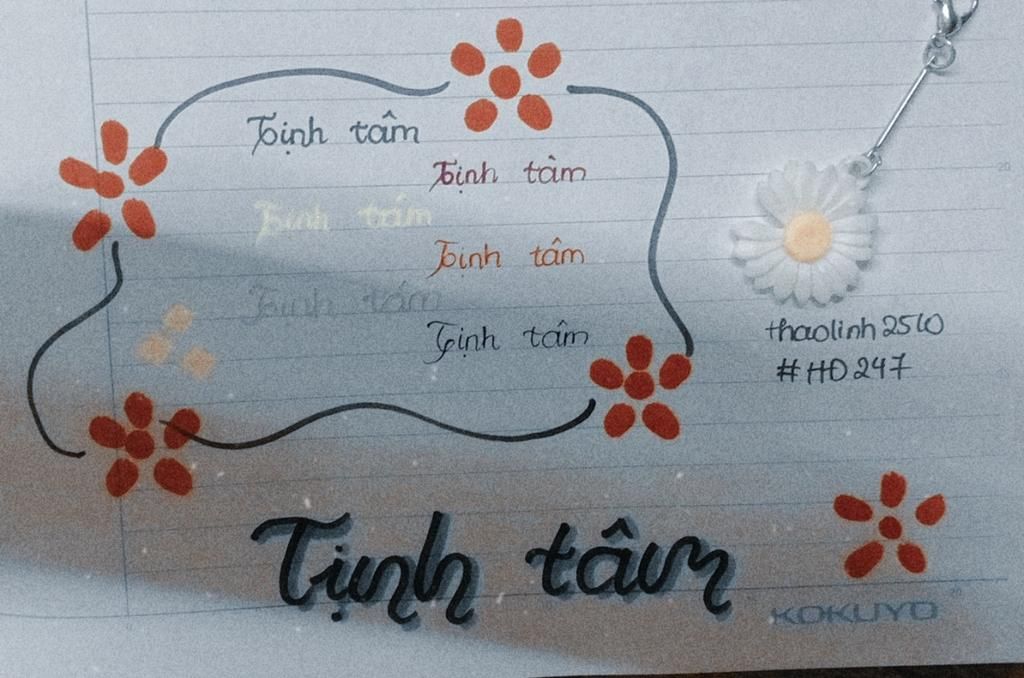 Tịnh tâm
Tịnh tâm
Tịnh tâm
Tịnh tâm
Tịnh tâm
Tịnh tâm
thaolinh2510
#HD247
Tịnh tâm
KOKUYO